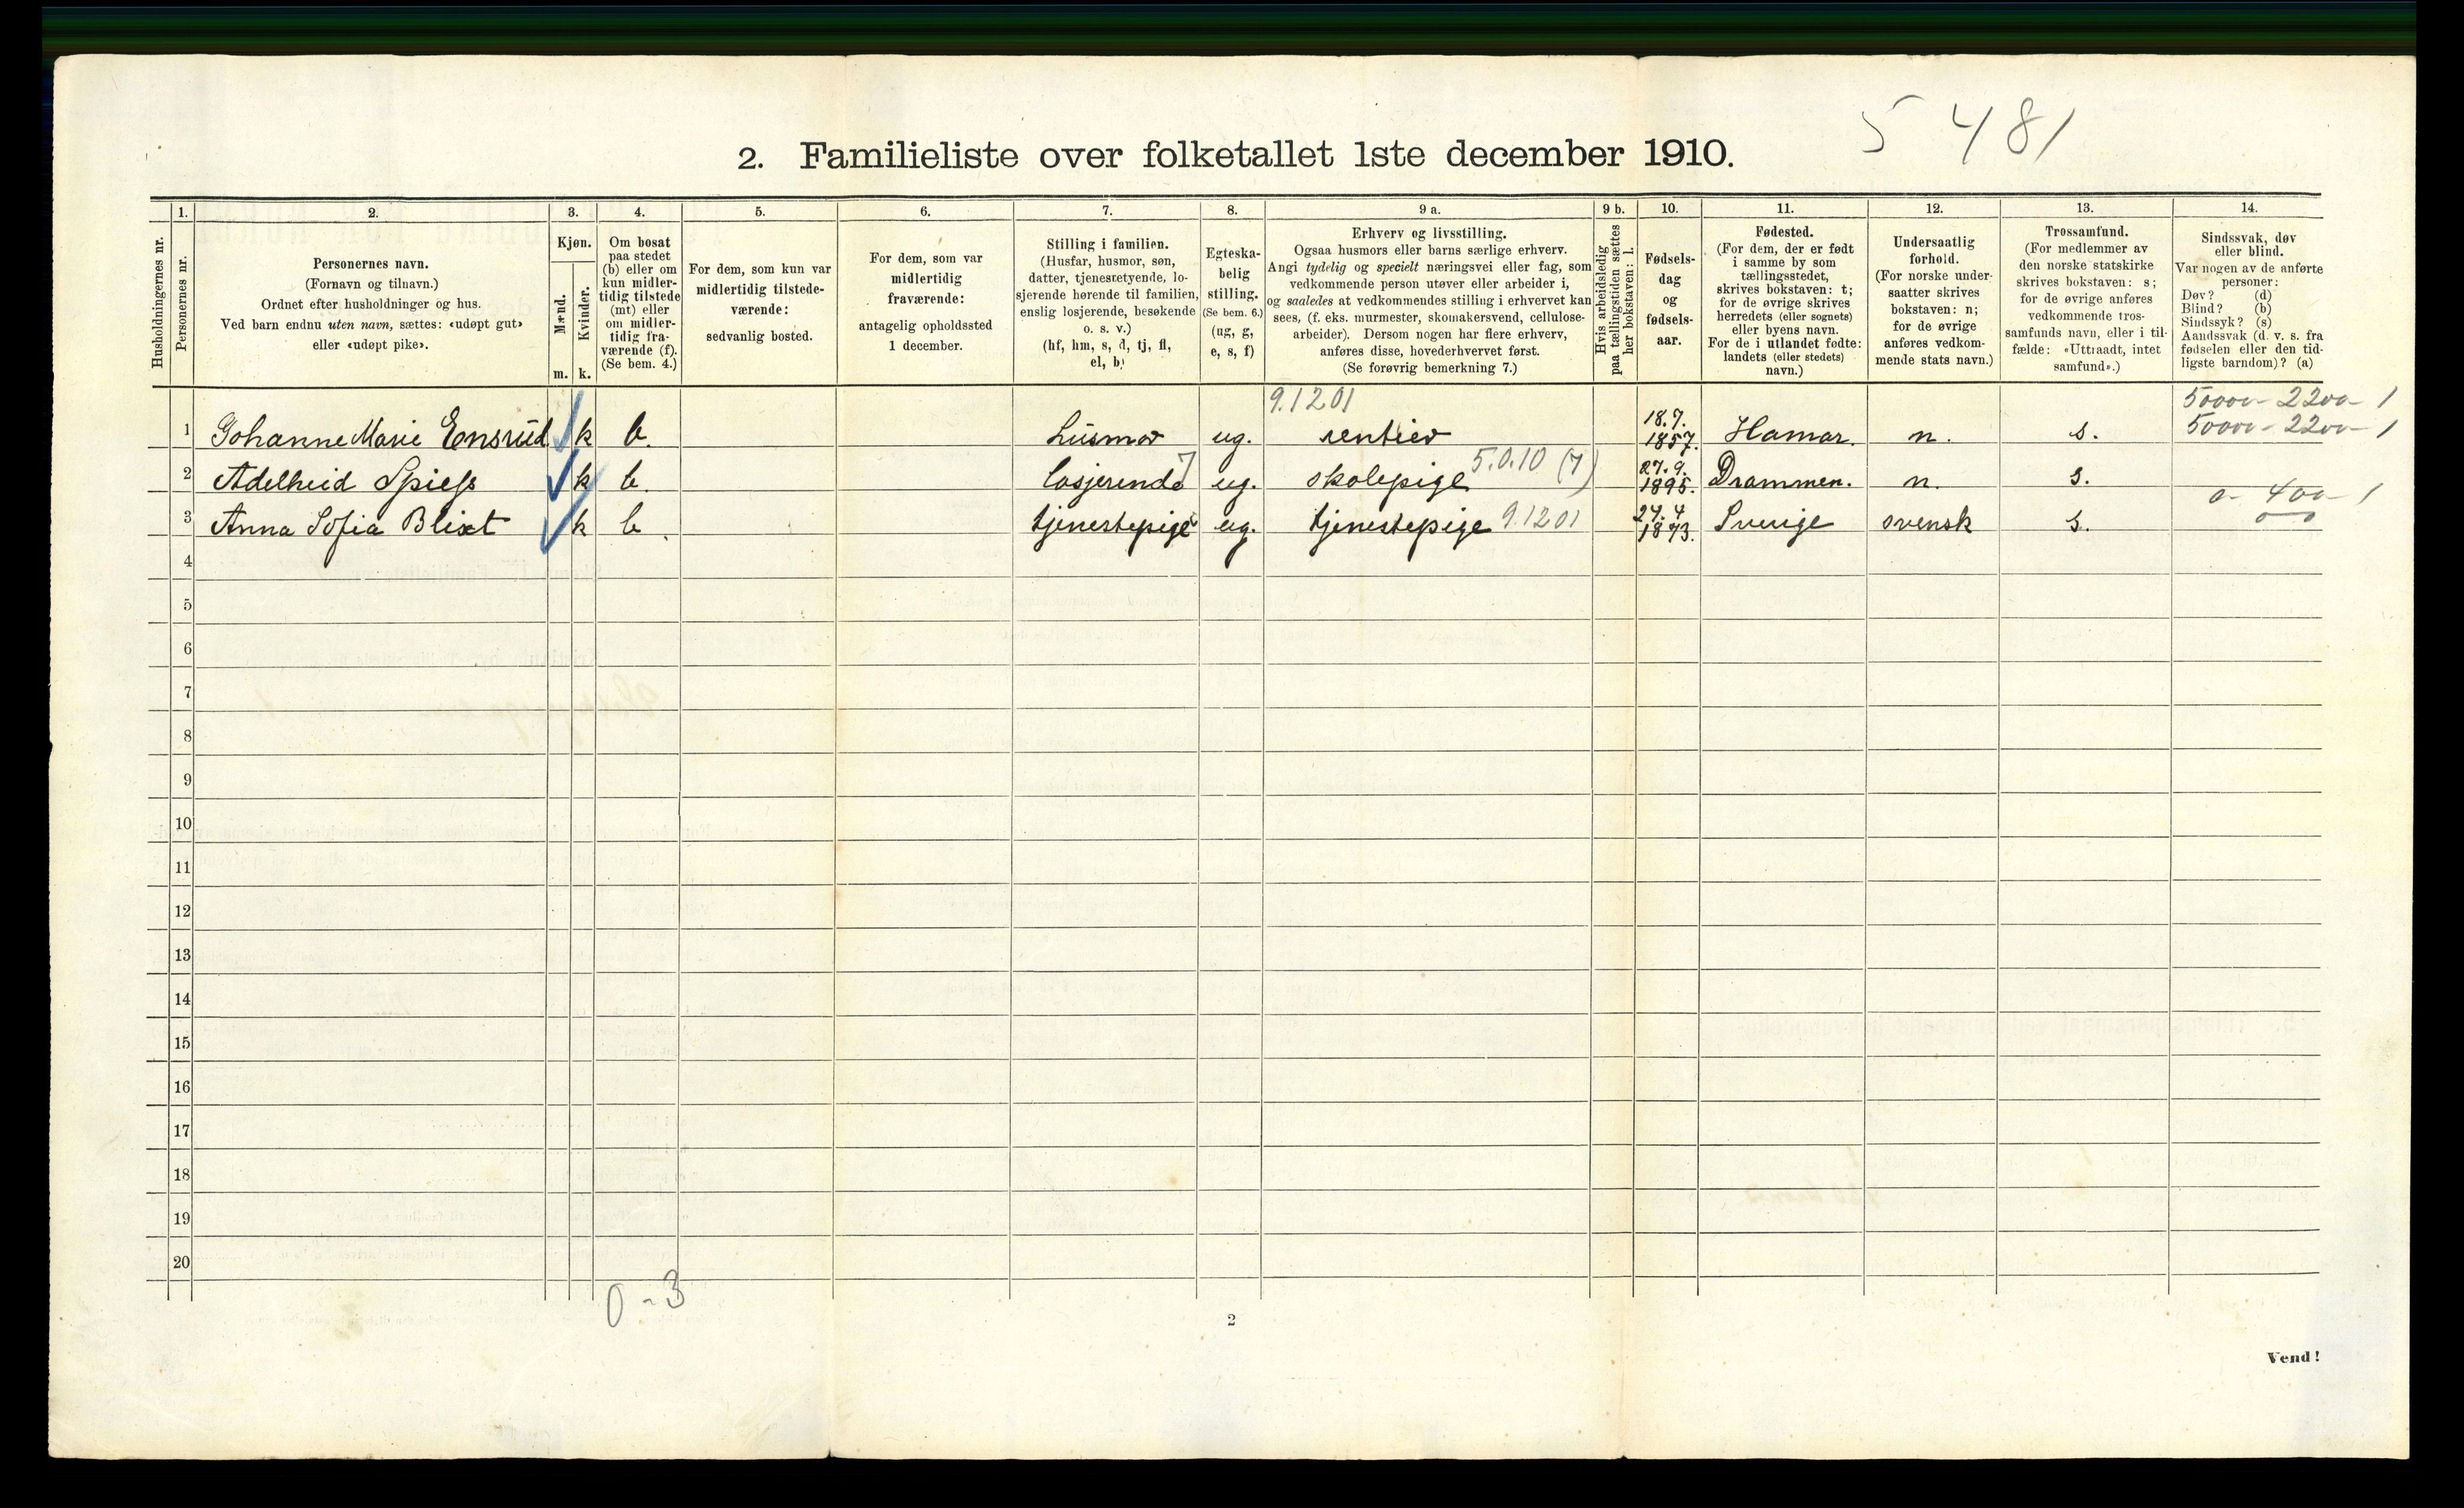 5 481
2. Familieliste over folketallet 1ste december 1910.
Husholdningernes nr.
1.
Personernes nr.
2.
Personernes navn.
(Fornavn og tilnavn.)
Ordnet efter husholdninger og hus.
Ved barn endnu uten navn, sættes: «udøpt gut»
eller «udøpt pike».
3.
Kjøn.
Mænd.
Kvinder.
m. k.
4.
Om bosat
paa stedet
(b) eller om
kun midler-
tidig tilstede
(mt) eller
om midler-
tidig fra-
værende (f).
(Se bem. 4.)
5.
For dem, som kun var
midlertidig tilstede-
værende:
sedvanlig bosted.
6.
For dem, som var
midlertidig
fraværende:
antagelig opholdssted
1 december.
7.
Stilling i familien.
(Husfar, husmor, søn,
datter, tjenestetyende, lo-
sjerende hørende til familien,
enslig losjerende, besøkende
o. s. v.)
(hf, hm, s, d, tj, fl,
el, b)
8.
Egteska-
belig
stilling.
(Se bem. 6.)
(ug, g,
e, s, f)
9 a.
Erhverv og livsstilling.
Ogsaa husmors eller barns særlige erhverv.
Angi tydelig og specielt næringsvei eller fag, som
vedkommende person utøver eller arbeider i,
og saaledes at vedkommendes stilling i erhvervet kan
sees, (f. eks. murmester, skomakersvend, cellulose-
arbeider). Dersom nogen har flere erhverv,
anføres disse, hovederhvervet først.
(Se forøvrig bemerkning 7.)
9 b.
Hvis arbeidsledig
paa tællingstiden sættes
her bokstaven: l.
10.
Fødsels-
dag
og
fødsels-
aar.
11.
Fødested.
(For dem, der er født
i samme by som
tællingsstedet,
skrives bokstaven: t;
for de øvrige skrives
herredets (eller sognets)
eller byens navn.
For de i utlandet fødte:
landets (eller stedets)
navn.)
12.
Undersaatlig
forhold.
(For norske under-
saatter skrives
bokstaven: n;
for de øvrige
anføres vedkom-
mende stats navn.)
13.
Trossamfund.
(For medlemmer av
den norske statskirke
skrives bokstaven: s;
for de øvrige anføres
vedkommende tros-
samfunds navn, eller i til-
fælde: «Uttraadt, intet
samfund».)
14.
Sindssvak, døv
eller blind.
Var nogen av de anførte
personer:
Døv? (d)
Blind? (b)
Sindssyk? (s)
Aandssvak (d. v. s. fra
fødselen eller den tid-
ligste barndom)? (a)
9.12 01 50000 - 2200 - 1
1 Johanne Marie Ensrud k b. husmor ug. rentier 18.7. 1857. Hamar. n. s. 50000 - 2200 - 1
2 Adelheid Spiess k b. losjerende 7 ug. skolepige 5.0.10 (7) 27.9. 1895. Drammen. n. s.
0 - 400 - 1
3 Anna Sofia Blixt k b. tjenestepige ug. tjenestepige 9.12 01 27.4 1873. Sverige svensk s.
4
5
6
7
8
9
10
11
12
13
14
15
16
17
18
19
20
0 - 3
2
Vend!